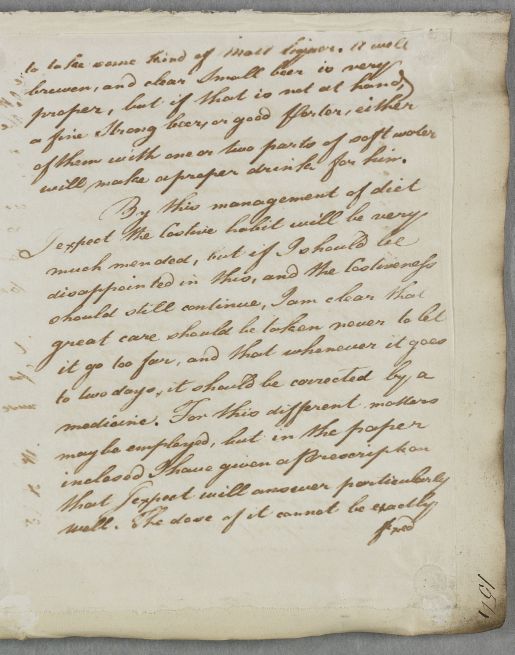 to take some kind of Malt liquor. A well
brewen, and clear Small beer is very
proper, but if that is not at hand,
a fine Strong beer, or good Porter, either
of them with one or two parts of soft water
will make a proper drink for him.
By this management of diet
I expect the Costive habit will be very
much mended, but if I should be
disappointed in this, and the Costiveness
should still continue, I am clear that
great care should be taken never to let
it go too far, and that whenever it goes
to two days, it should be corrected by a
medicine. For this different matters
may be employed, but in the paper
inclosed I have given a Prescription
that I expect will answer particularly
well. The dose of it cannot be exactly
fixed